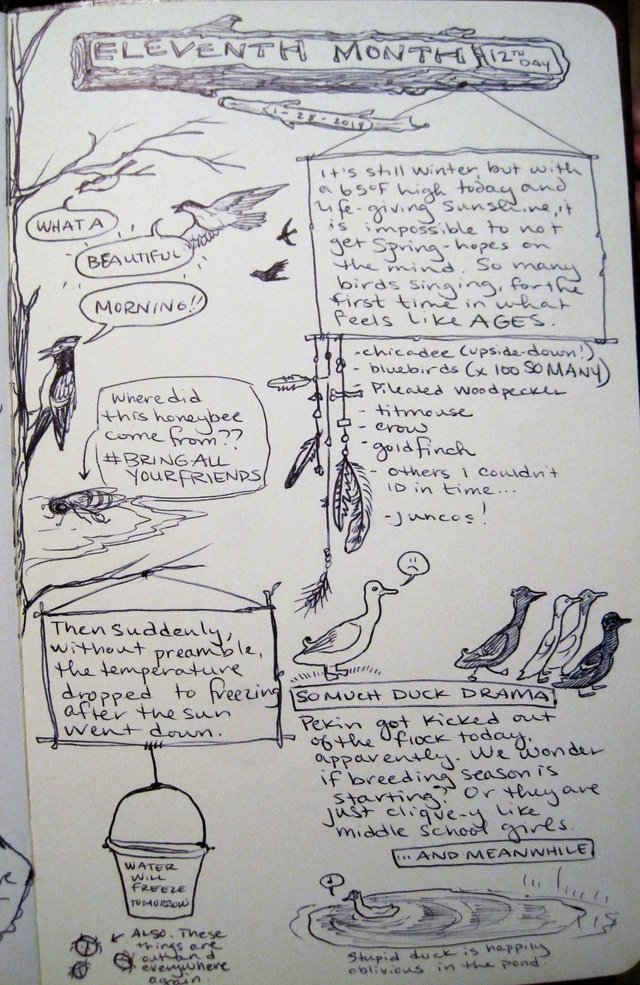 ELEVENTH MONTH 12TH DAY
1-28-2018
WHAT A
BEAUTIFUL
MORNING!!
It's still winter, but with
a 65°F high today and
life-giving sunshine, it
is impossible to not
get Spring-hopes on
the mind. So many
birds singing, for the
first time in what
feels like AGES.
- chicadee (upside-down!)
- bluebirds (x 100 SO MANY)
- Pileated Woodpecker
- titmouse
- crow
- goldfinch
- others I couldn't
ID in time...
- juncos!
Where did
this honeybee
come from??
#BRING ALL
YOUR FRIENDS
Then suddenly,
without preamble,
the temperature
dropped to freezing
after the sun
went down.
WATER
WILL
FREEZE
TOMORROW
ALSO. These
things are
out and
everywhere
again.
SO MUCH DUCK DRAMA
Pekin got kicked out
of the flock today,
apparently. We wonder
if breeding season is
starting? Or they are
just clique-y like
middle school girls.
...AND MEANWHILE
Stupid duck is happily
oblivious in the pond.